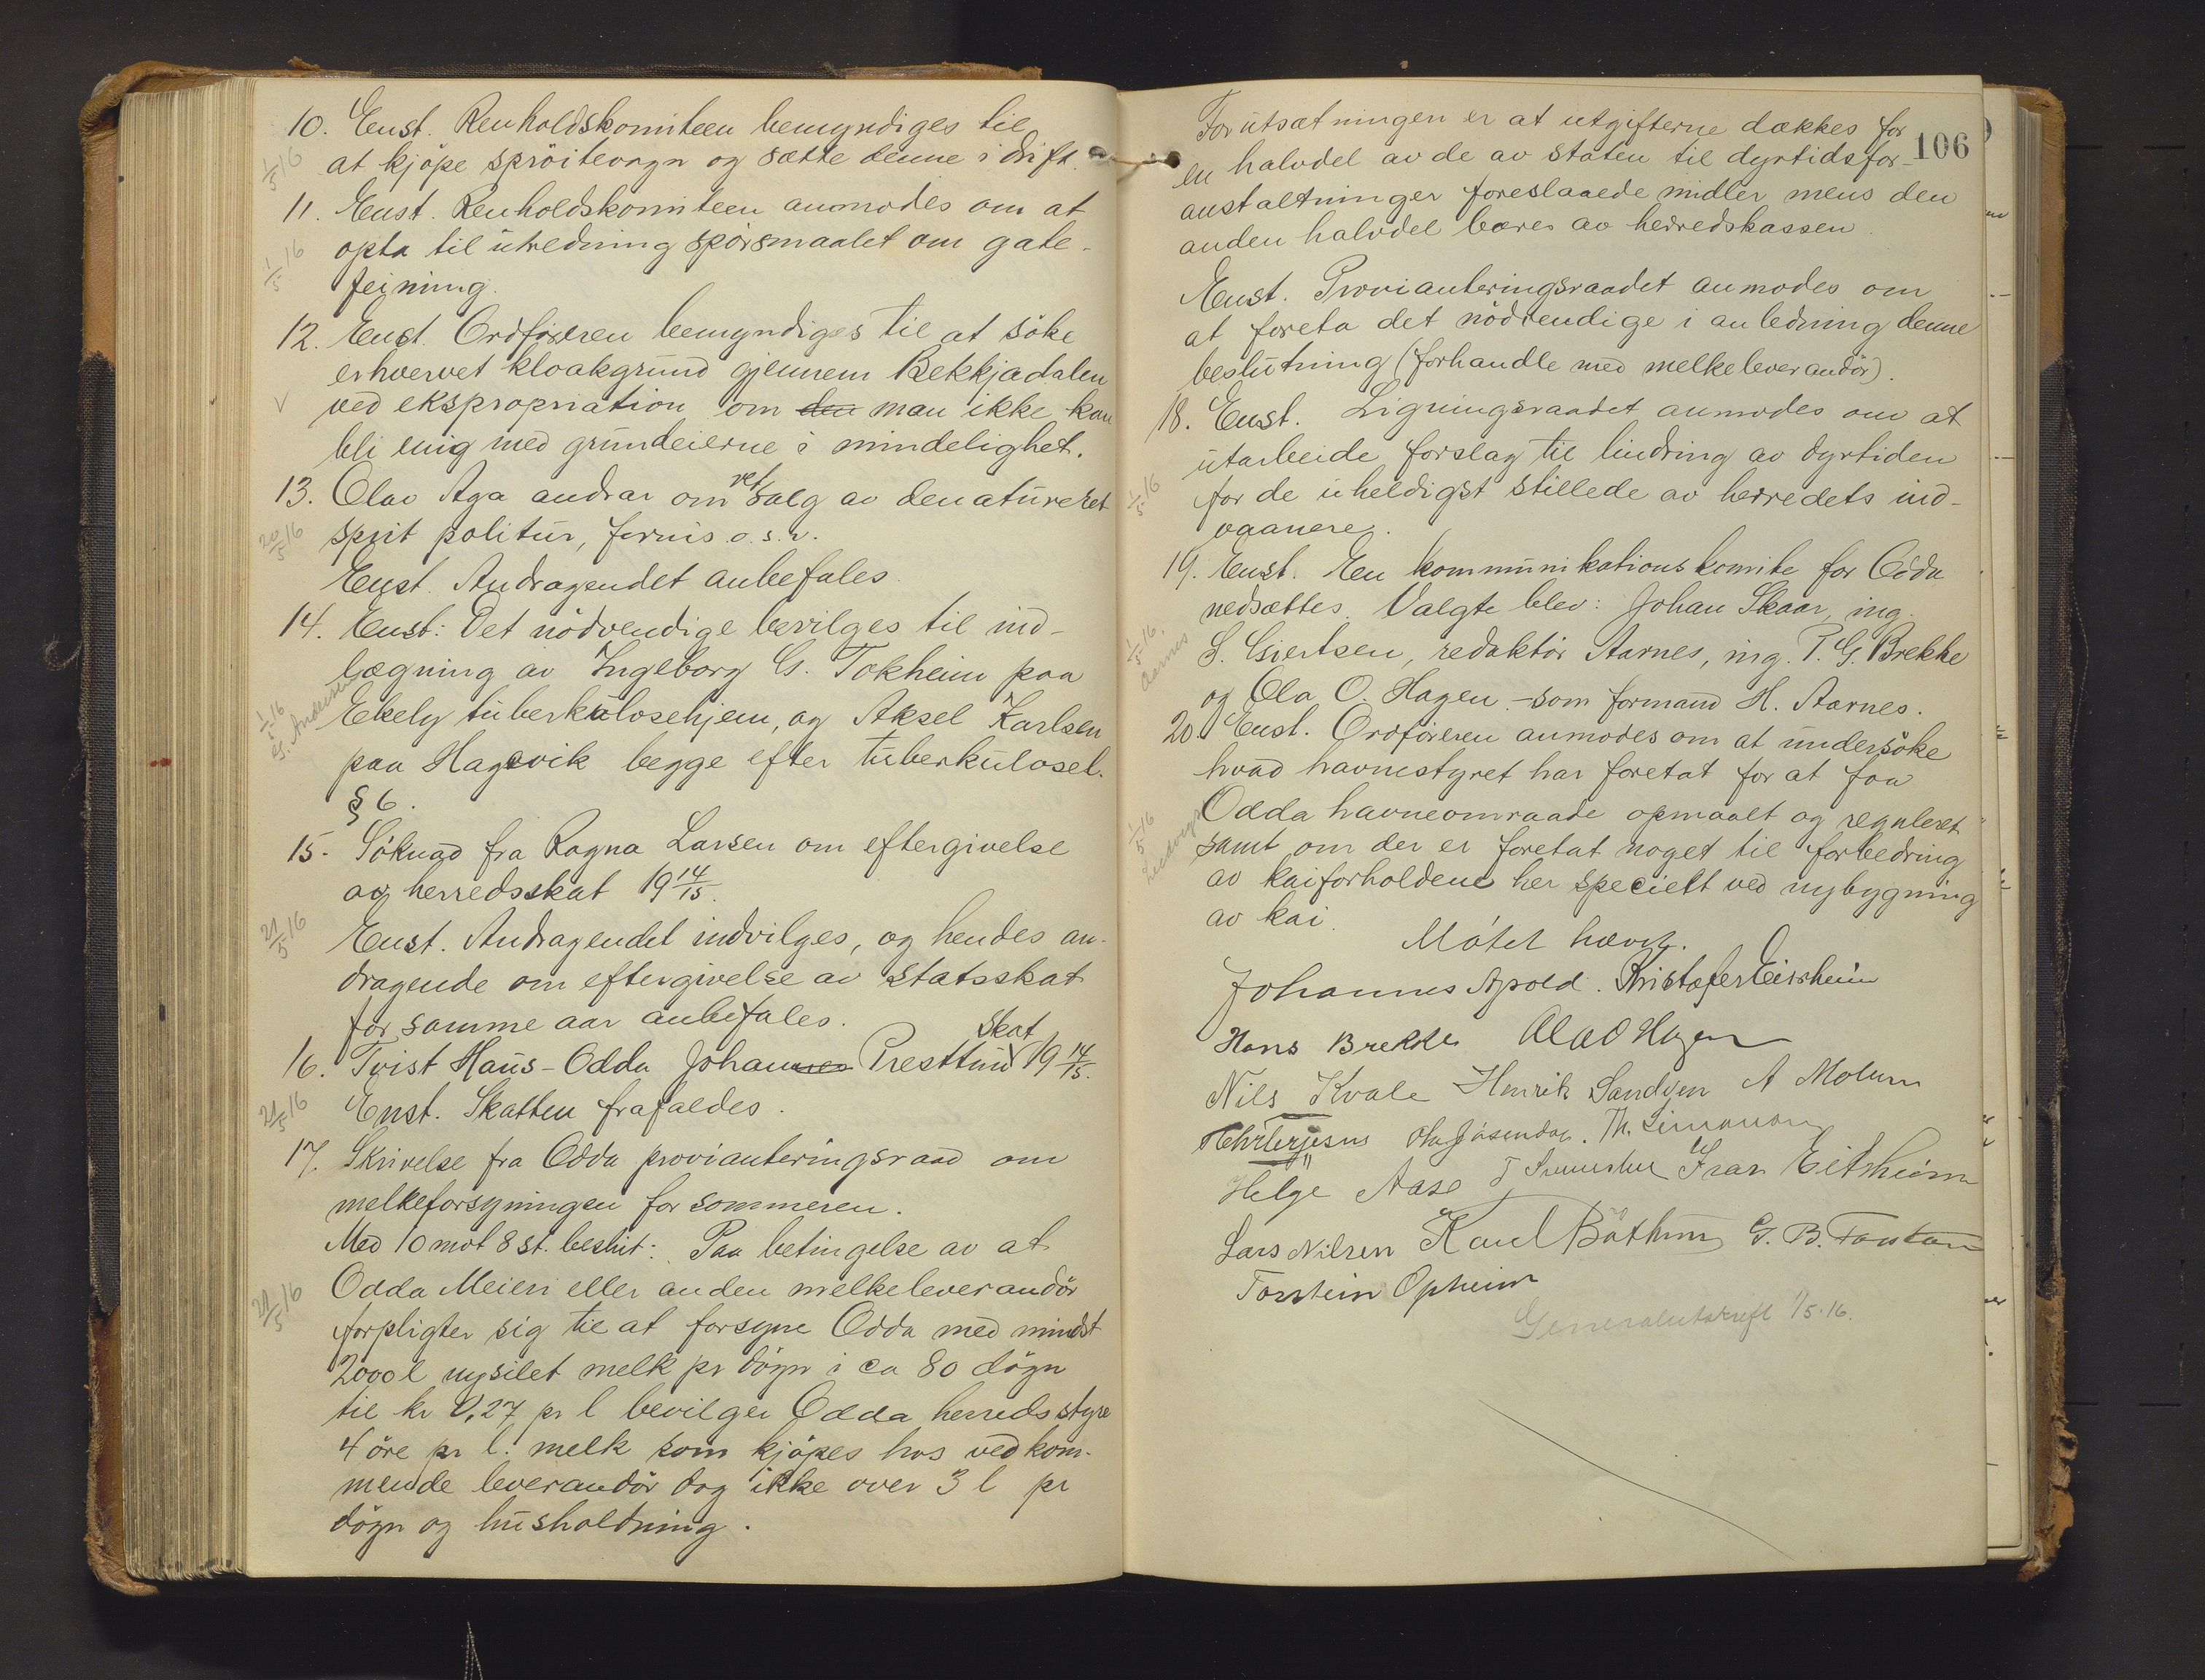 10. Enst. Renholdskomiteen bemyndiges til
1/5 16
at kjöpe spröitevogn og sætte denne i drift.
11. Enst. Renholdskomiteen anmodes om at
opta til utredning spörsmaalet om gate-
1/5 16
feining.
12. Enst. Ordföreren bemyndiges til at söke
erhvervet kloakgrund gjennem Bekkjadalen
ved ekspropriation om den man ikke kan
bli enig med grundeierne i mindelighet.
13. Olav Aga andrar om ret salg av denaturert
20/5 16
sprit politur, fernis o.s.v.
Enst. Andragendet anbefales.
14. Enst: Det nödvendige bevilges til ind-
lægning av Ingeborg G. Tokheim paa
1/5 16
G. Andersen
Ekely tuberkulosehjem, og Aksel Karlsen
paa Hagavik begge efter tuberkulosel.
§ 6.
15. Söknad fra Ragna Larsen om eftergivelse
av herredsskat 19 14/15.
21/5 16
Enst. Andragendet indvilges, og hendes an-
dragende om eftergivelse av statsskat
for samme aar anbefales.
16. Tvist Haus-Odda Johannes Presttun skat 19 14/15.
21/5 16
Enst. Skatten frafaldes.
17. Skrivelse fra Odda provianteringsraad om
melkeforsyningen for sommeren.
Med 10 mot 8 st. beslut: Paa betingelse av at
21/5 16
Odda Meieri eller anden melkeleverandör
forpligter sig til at forsyne Odda med mindst
2000 l nysilet melk pr dögn i ca 80 dögn
til kr 0,27 pr l bevilger Odda herredsstyre
4 öre pr l. melk som kjöpes hos vedkom-
mende leverandör dog ikke over 3 l pr
dögn og husholdning.
106
Forutsætningen er at utgifterne dækkes for
en halvdel av de av staten til dyrtidsfor-
anstaltninger foreslaaede midler mens den
anden halvdel bæres av herredskassen.
Enst. Provianteringsraadet anmodes om
at foreta det nödvendige i anledning denne
beslutning (forhandle med melkeleverandör).
18. Enst. Ligningsraadet anmodes om at
utarbeide forslag til lindring av dyrtiden
1/5 16
for de uheldigst stillede av herredets ind-
vaanere.
19. Enst. En kommunikationskomite for Odda
nedsættes. Valgte blev: Johan Skaar, ing.
1/5 16.
Aarnes
S. Giertsen, redaktör Aarnes, ing. P. G. Brekke
og Ola O. Hagen - som formand H. Aarnes.
20. Enst. Ordföreren anmodes om at undersöke
hvad havnestyret har foretat for at faa
1/5 16
Odda havneomraade opmaalt og reguleret
samt om der er foretat noget til forbedring
av kaiforholdene her specielt ved nybygning
av kai.
Mötet hævet.
Johannes Apold. Kristofer Eitrheim
Hans Brekke Ola O Hagen
Nils Kvale Henrik Sandven A Molum
Th. Simonsen
Helge Aase Ivar Eitrheim
Lars Nilsen Karl Böthun G. B. Tokheim
Torstein Opheim
Generalutskrift 1/5.16.